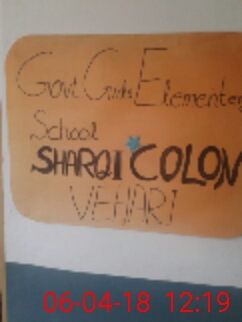 Govt Girls Elementer
School
SHARQI COLON
VEHARI
06-04-18 12:19